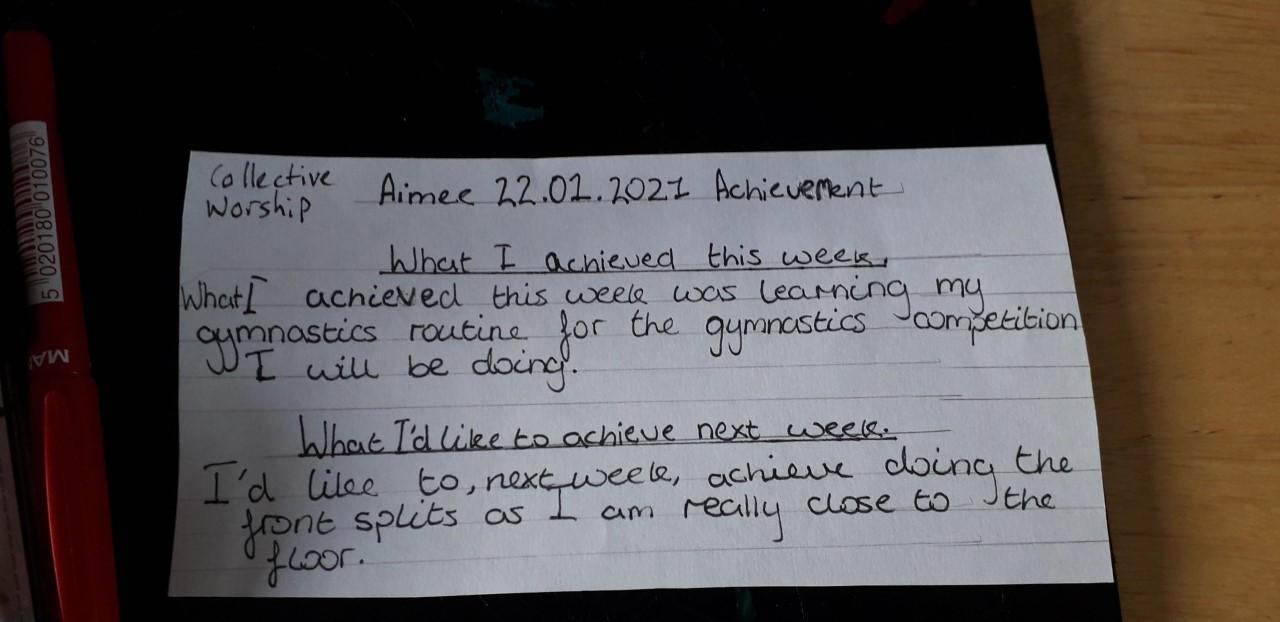 Collective
Worship
Aimee 22.01.2021 Achievement
What I achieved this week.
What I achieved this week was learning my
gymnastics routine for the gymnastics competition
I will be doing.
What I'd like to achieve next week.
I'd like to, next week, achieve doing the
front splits as I am really close to the
floor.
5 020180 010076